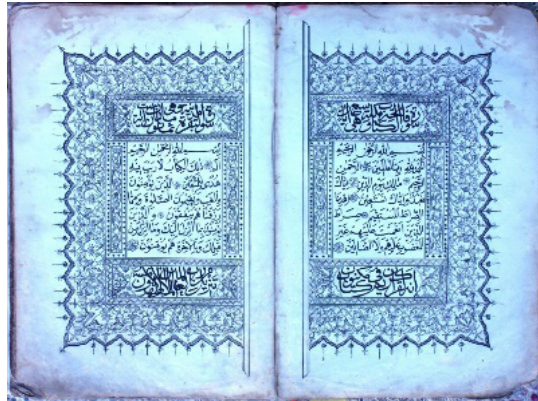 بسم الله الرحمن الرحيم
الحمد لله رب العالمين الرحمن
الرحيم ملك يوم الدين اياك
نعبد واياك نستعين اهدنا
الصراط المستقيم صراط
الذين انعمت عليهم غير
المغضوب عليهم ولا الضالين
انه لقران كريم في كتاب مكنون
بسم الله الرحمن الرحيم
الم ذلك الكتاب لا ريب فيه
هدى للمتقين الذين يؤمنون
بالغيب ويقيمون الصلوة ومما
رزقناهم ينفقون والذين
يؤمنون بما انزل اليك وما انزل من
قبلك وبالاخرة هم يوقنون